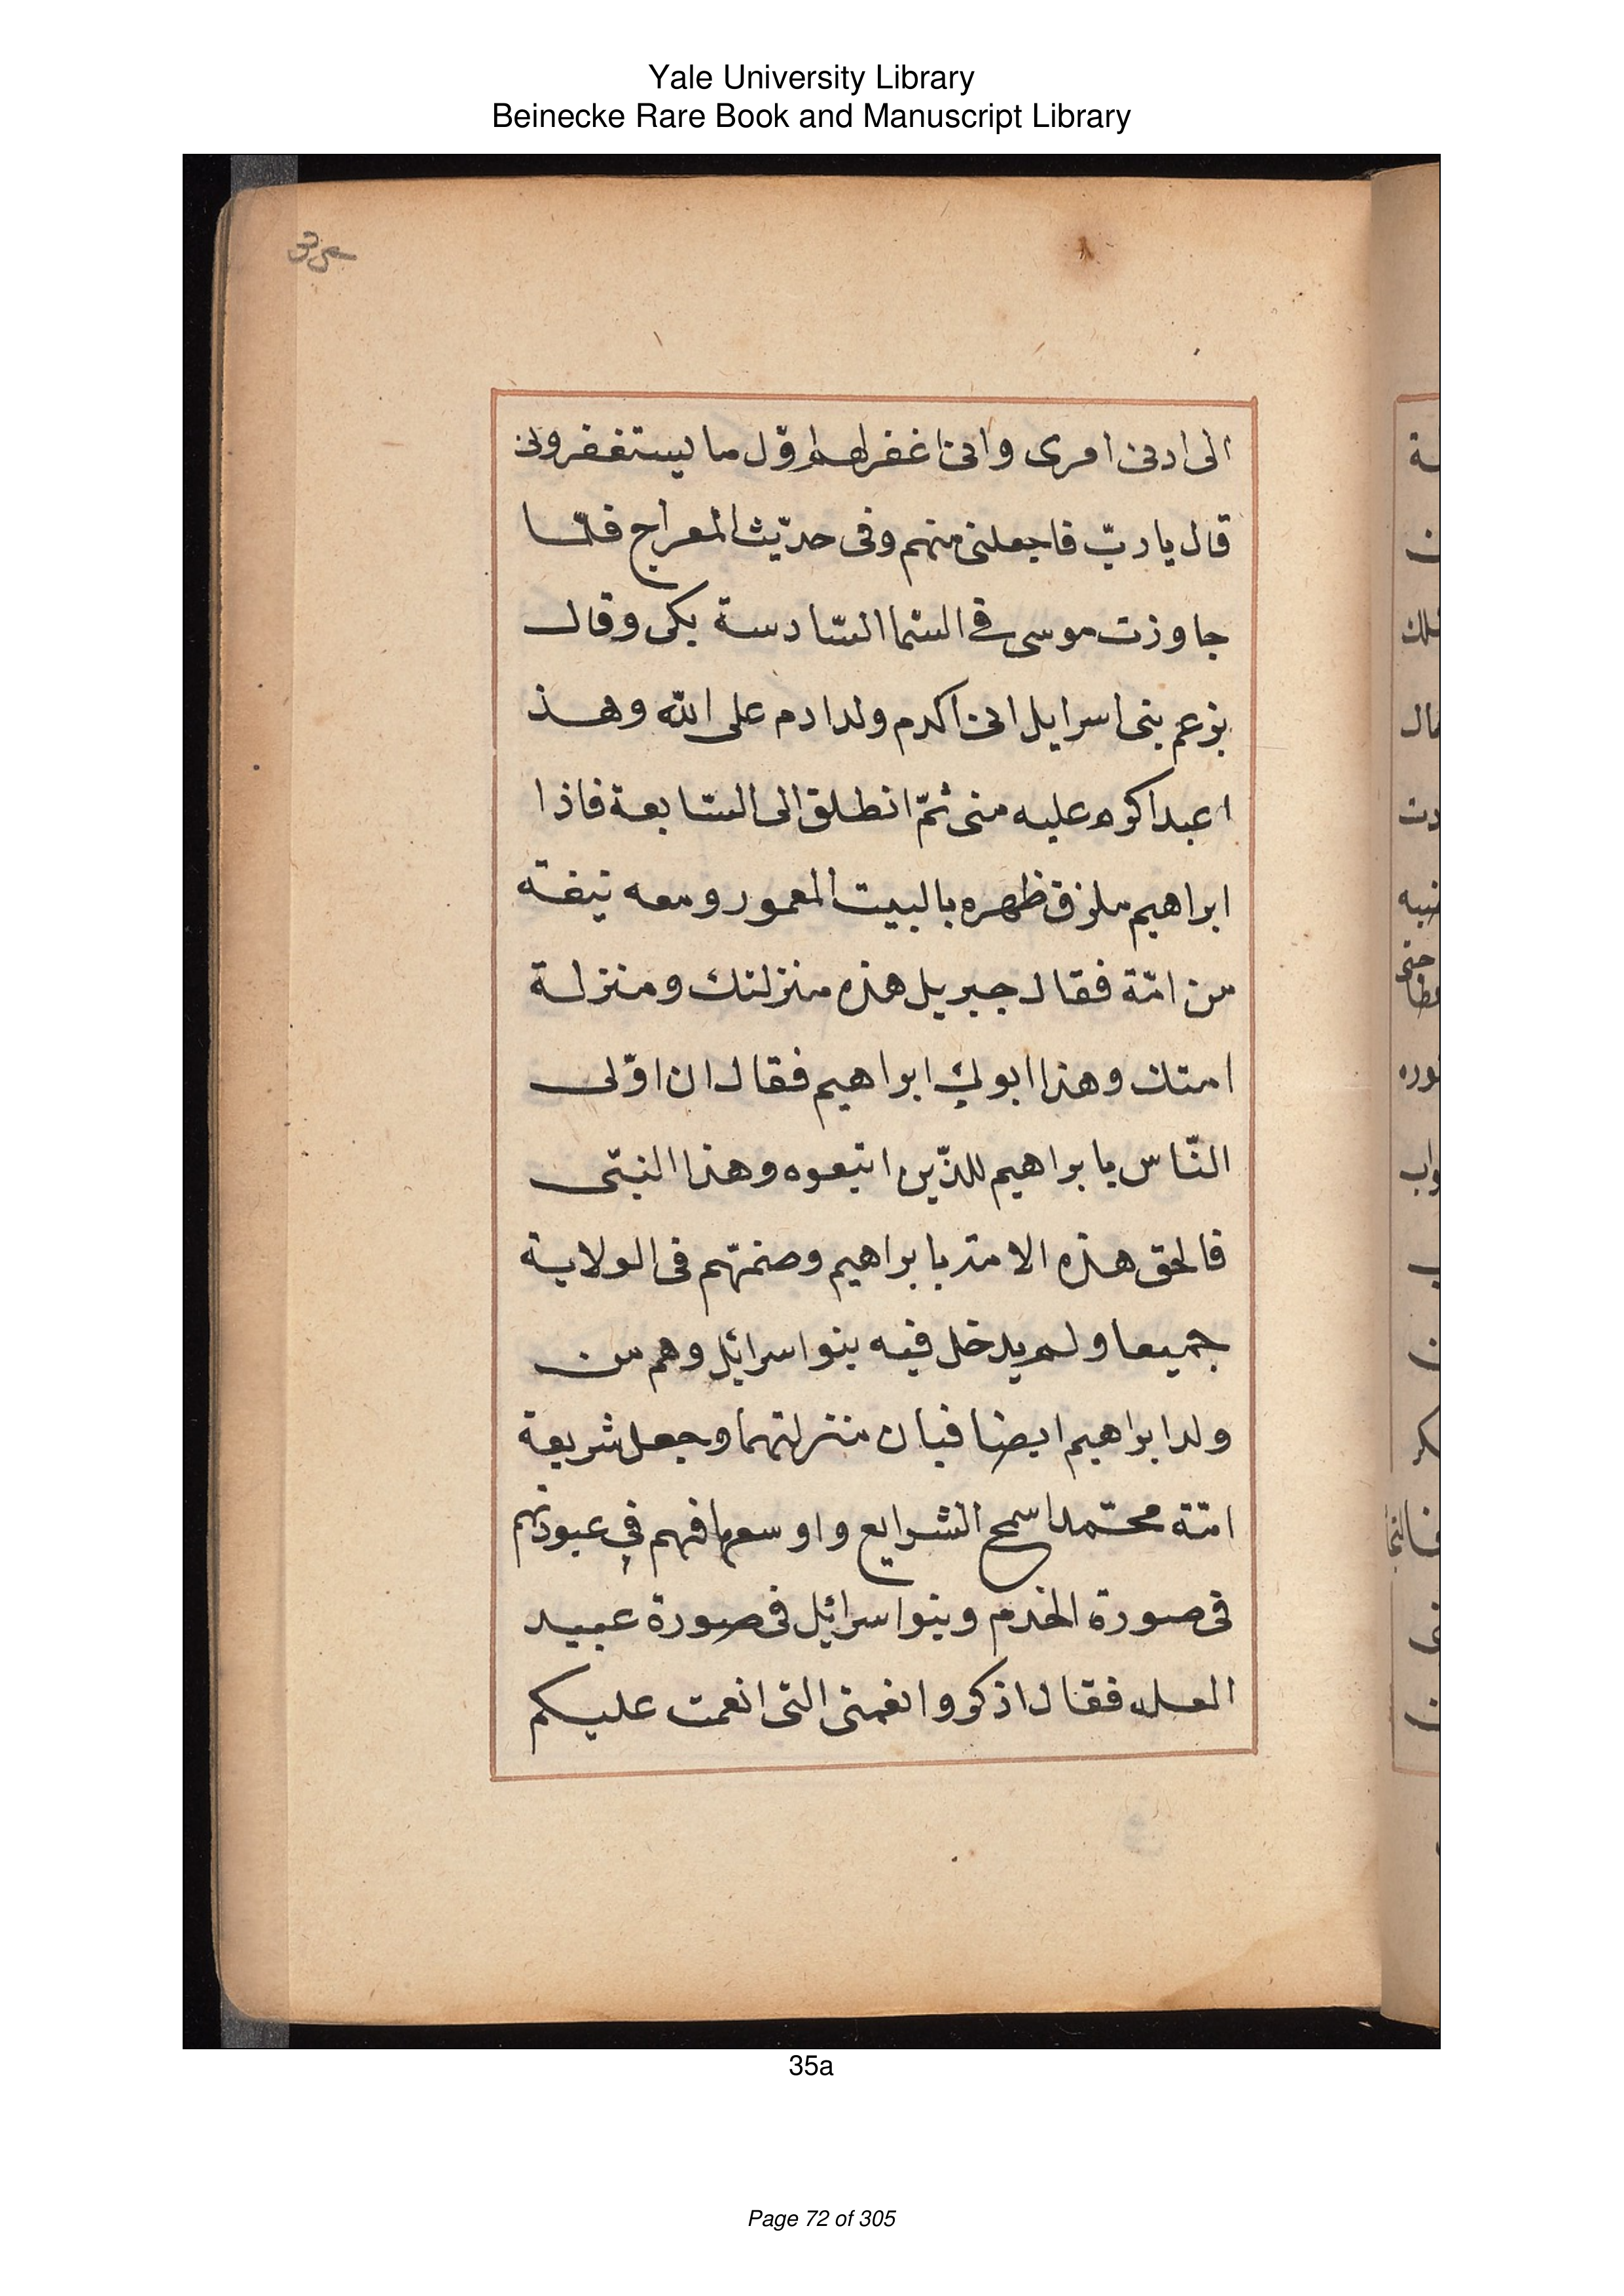 Yale University Library
Beinecke Rare Book and Manuscript Library
35a
الى ادنى امرى وانى اغفر لهم اوّل ما يستغفرونى
قال يا ربّ فاجعلنى منهم وفى حدّيث المعراج فلمّا
جاوزت موسى فى السّما السّادسة بكى وقال
بزعم بنى اسرايل انى اكرم ولد ادم على الله وهذ
ا عبد اكره عليه منى ثمّ انطلق الى السّابعة فاذا
ابراهيم ملزق ظهره بالبيت المعمور ومعه نيفة
من امّة فقال جبريل هذه منزلتك ومنزلة
امتك وهذا ابوك ابراهيم فقال ان اوّلى
النّاس بابراهيم للذّين اتبعوه وهذا النبّى
فالحق هذه الامة بابراهيم وضمّهم فى الولاية
جميعا ولم يدخل فيه بنوا سرائل وهم من
ولد ابراهيم ايضا فبان منزلتهما وجعل شريعة
امّة محمّد اسمح الشرايع واوسعها فهم في عبودتهم
فى صورة الخدم وبنوا سرائل فى صورة عبيد
العمل فقال اذكروا نعمتى التى انعمت عليكم
35a
Page 72 of 305